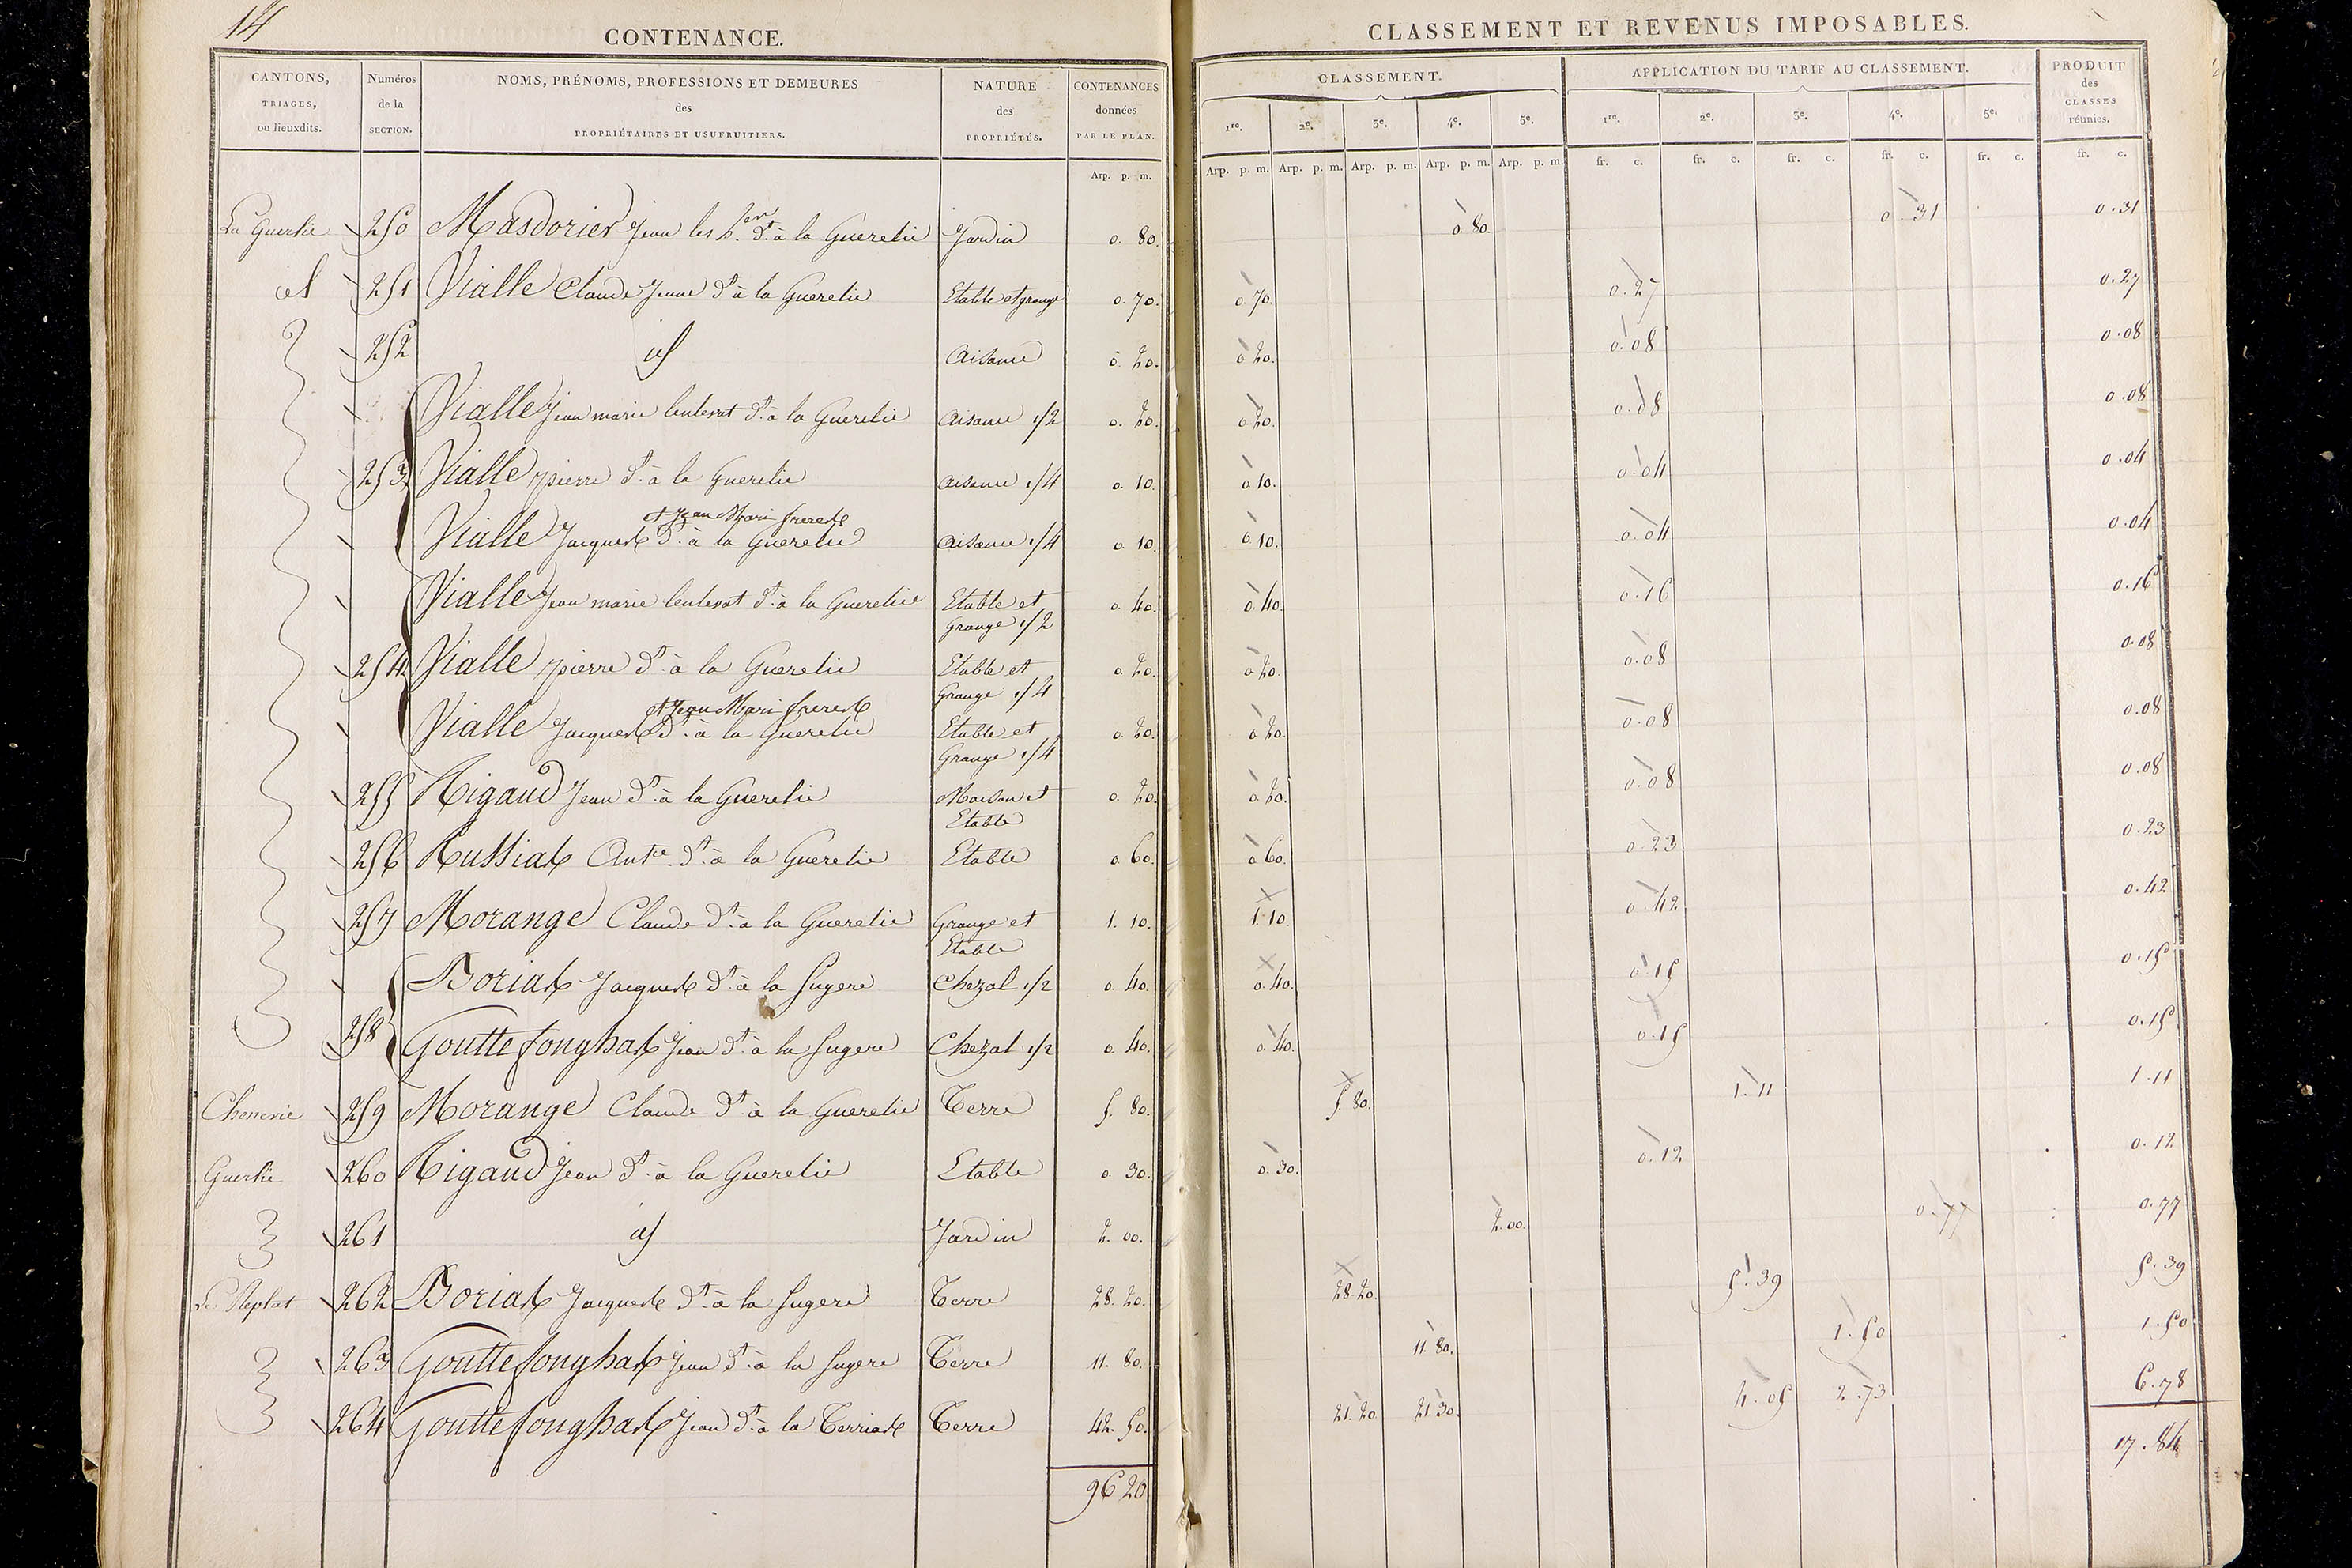 14
CONTENANCE.
CANTONS,
TRIAGES,
ou lieuxdits.
Numéros
de la
SECTION.
NOMS, PRÉNOMS, PROFESSIONS ET DEMEURES
des
PROPRIÉTAIRES ET USUFRUITIERS.
NATURE
des
PROPRIÉTÉS.
CONTENANCES
données
PAR LE PLAN.
Arp. p. m.
CLASSEMENT ET REVENUS IMPOSABLES.
CLASSEMENT.
APPLICATION DU TARIF AU CLASSEMENT.
PRODUIT
des
CLASSES
réunies.
1re. 2e. 3e. 4e. 5e. 1re. 2e. 3e. 4e. 5e.
Arp. p. m. Arp. p. m. Arp. p. m. Arp. p. m. Arp. p. m. fr. c. fr. c. fr. c. fr. c. fr. c. fr. c.
La Guerlie 250 Masdorier Jean les h. dt. à la Gueretie Jardin 0. 80. 0. 80. 0. 31 0.31
id 251 Vialle Claude Jeune dt. à la Gueretie Etable et grange 0. 70. 0. 70. 0. 27 0.27
252 id Aisance 0. 20. 0. 20. 0. 08 0.08
Vialle Jean marie dt. à la Gueretie Aisance 1/2 0. 20. 0. 20. 0. 08 0.08
253 Vialle pierre dt. à la Gueretie aisance 1/4 0. 10. 0. 10. 0. 04 0.04
et Jean Mari freres
Vialle Jacques dt. à la Gueretie aisance 1/4 0. 10. 0. 10. 0. 04 0.04
Vialle Jean marie dt. à la Gueretie Etable et 0. 40. 0. 40. 0. 16 0.16
Grange 1/2
254 Vialle pierre dt. à la Gueretie Etable et 0. 20. 0. 20. 0. 08 0.08
Grange 1/4
et Jean Mari freres
Vialle Jacques dt. à la Gueretie Etable et 0. 20. 0. 20. 0. 08 0.08
Grange 1/4
255 Rigaud Jean dt. à la Gueretie Maison et 0. 20. 0. 20. 0. 08 0.08
Etable
256 Russias Ante. dt. à la Gueretie Etable 0. 60. 0. 60. 0. 23 0.23
257 Morange Claude dt. à la Gueretie Grange et 1. 10. 1. 10. 0. 42 0.42
Etable
Borias Jacques dt. à la Sugere Chezal 1/2 0. 40. 0. 40. 0. 15 0.15
258 Gouttefonghas Jean dt. à la Sugere Chezal 1/2 0. 40. 0. 40. 0. 15 0.15
Chenerie 259 Morange Claude dt. à la Gueretie Terre 5. 80. 5. 80. 1. 11 1.11
Guerlie 260 Rigaud Jean dt. à la Gueretie Etable 0. 30. 0. 30. 0. 12 0.12
261 id Jardin 2. 00. 2. 00. 0. 77 0.77
Le Replat 262 Borias Jacques dt. à la Sugere Terre 28. 20. 28. 20. 5. 39 5.39
263 Gouttefonghas Jean dt. à la Sugere Terre 11. 80. 11. 80. 1. 50 1.50
264 Gouttefonghas Jean dt. à la Terriase Terre 42. 50. 21. 20. 21. 30. 4. 05 2. 73 6.78
96 20 17.84